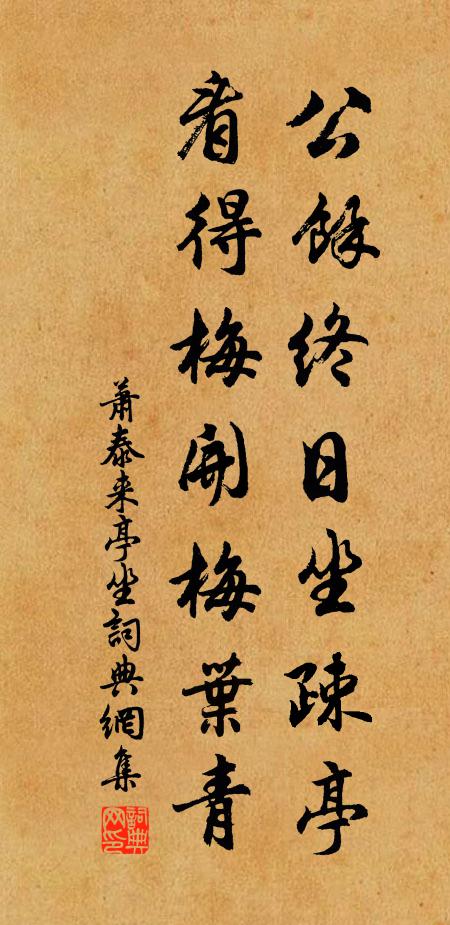 公餘終日坐疎亭
看得梅開梅葉青
蕭泰来亭坐詞典網集
詞典网印